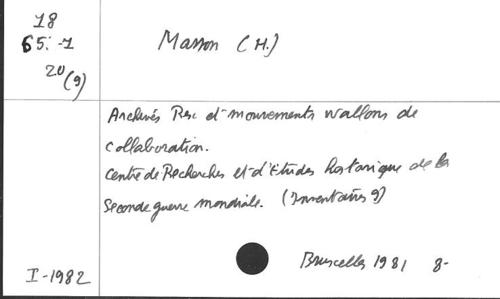 18
65:-1
20(9)
Masson (H.)
Archives Rex et mouvements wallons de
collaboration.
Centre de Recherches et d'Etudes historique de la
Seconde guerre mondiale. (Inventaires 9)
Bruxelles 1981 8-
I-1982